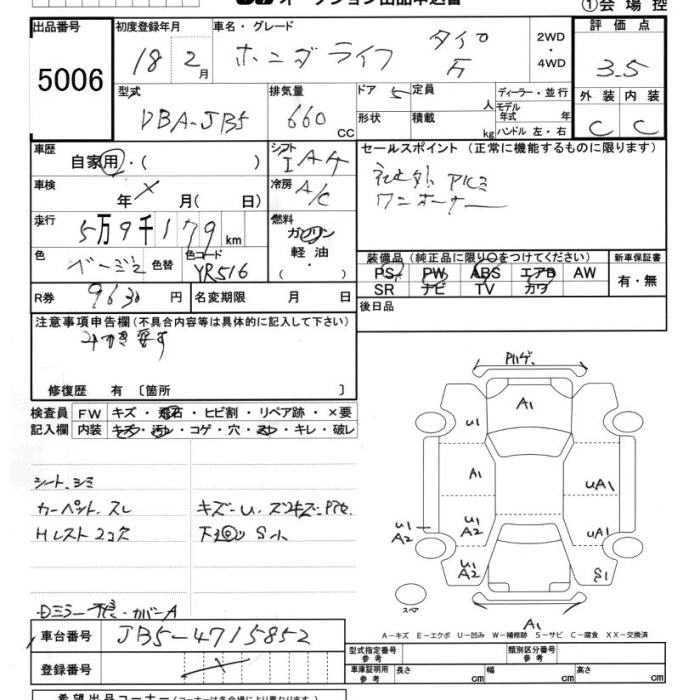 ①会場控
出品番号
5006
初度登録年月
18 2月
車名・グレード
ホンダライフ
タイプ
2WD
・
4WD
評価点
3.5
外装 内装
C C
型式
DBA-JB5
排気量
660 CC
ドア 5
定員 人
形状
積載 kg
ディーラー・並行
モデル年式 年
ハンドル 左・右
車歴
自家用・( )
シフト
IAT
セールスポイント (正常に機能するものに限ります)
社外
ワンオーナー
車検
年 月( 日)
冷房
A/C
走行
5万9千179 km
燃料
ガソリン
軽油
・
( )
色
ベージュ
色替
色コード
YR516
装備品(純正品に限り○をつけてください)
PS PW ABS エアB AW
SR ナビ TV カワ
新車保証書
有・無
R券
9630 円
名変期限 月 日
後日品
注意事項申告欄(不具合内容等は具体的に記入して下さい)
修復歴 有 〔箇所 〕
検査員記入欄
FW キズ・飛石・ヒビ割・リペア跡・×要
内装 キズ・汚レ・コゲ・穴・スレ・キレ・破レ
シート、シミ
カーペット、スレ
Hレスト2コ欠
キズ-U、
下廻 S小
Dミラー カバーA
A1
U1
A1
U1
A2
U1
A2
U1
A2
UA1
UA1
S1
A1
スペア
A-キズ E-エクボ U-凹み W-補修跡 S-サビ C-腐食 XX-交換済
車台番号
JB5-4715852
登録番号
型式指定番号 参考
類別区分番号 参考
車庫証明用 参考
長さ cm
幅 cm
高さ cm
希望出品コーナー(コーナーは各会場により異なります)